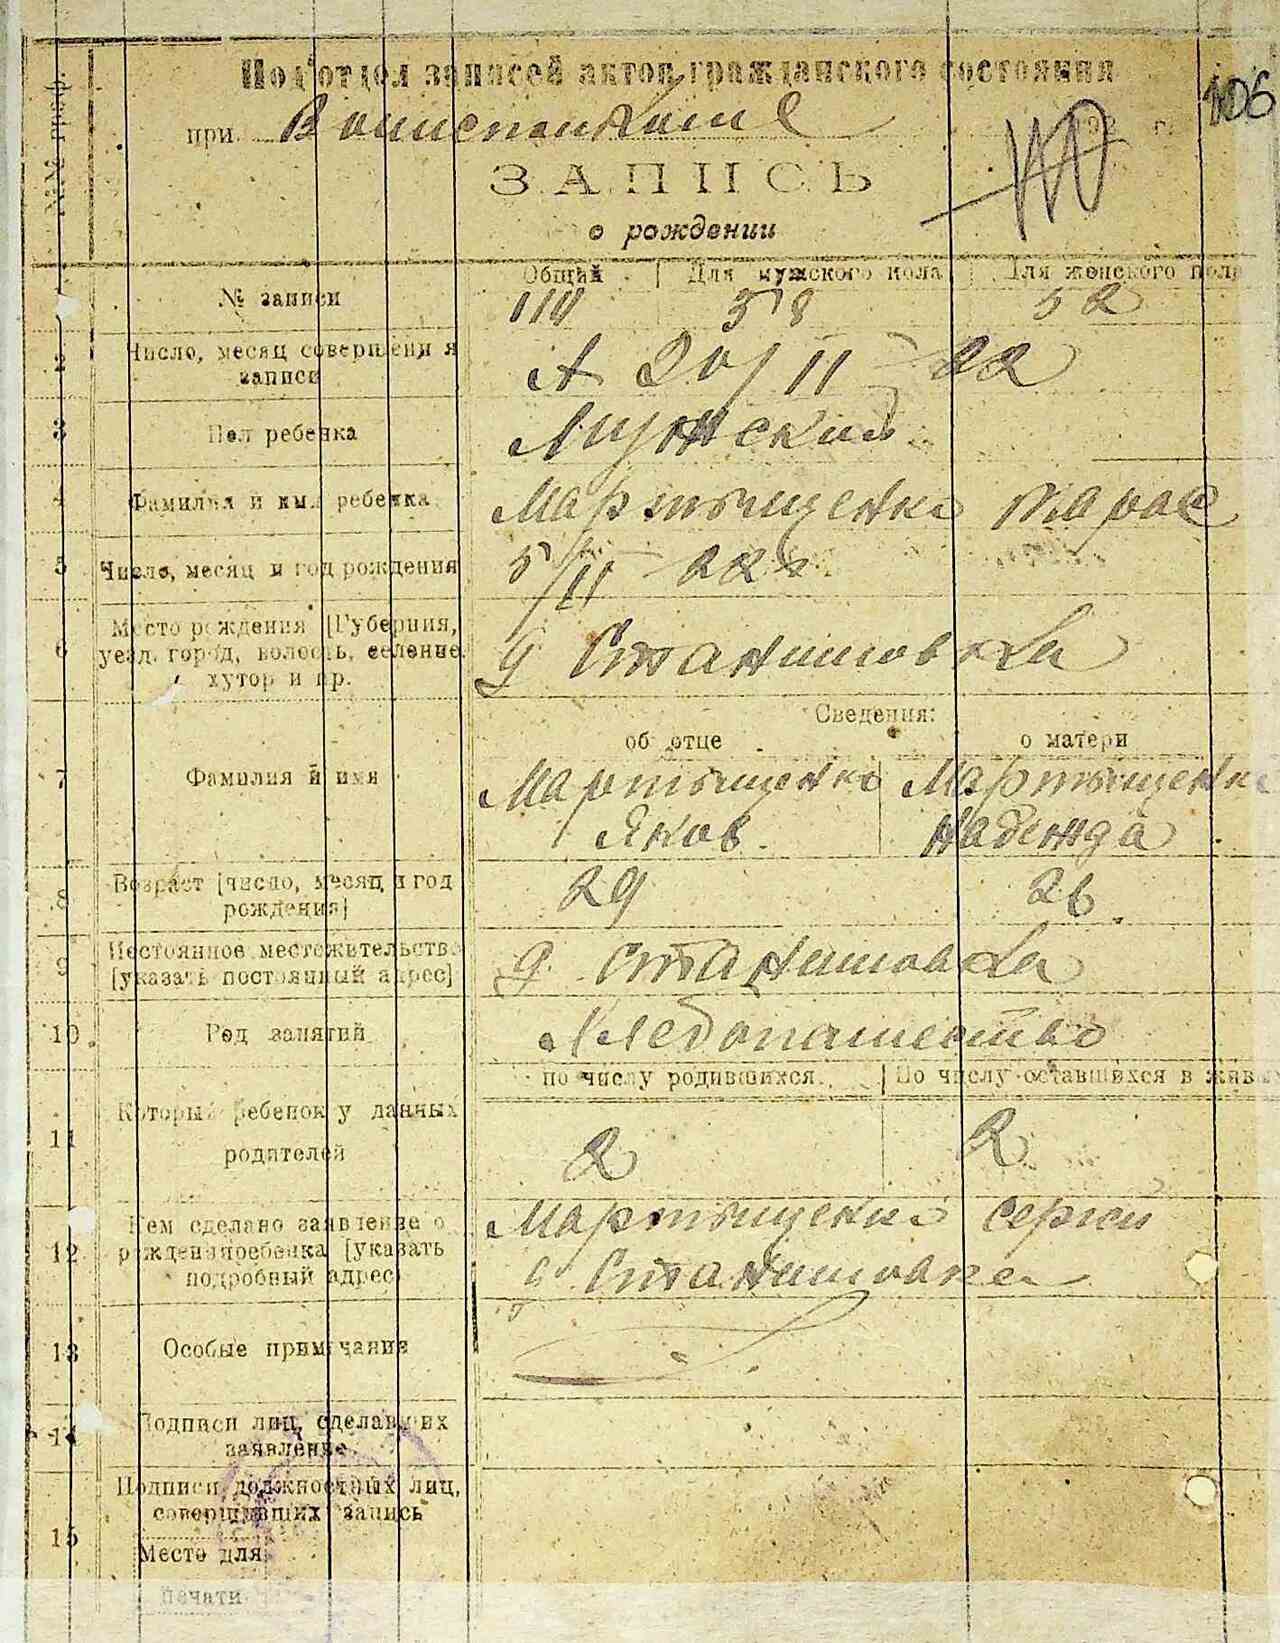 №№ граф.
Подотдел записей актов гражданского состояния
106
при
192 г.
ЗАПИСЬ
о рождении
Общий Для мужского пола Для женского пола
№ записи 110 58 52
2 Число, месяц совершения записи 20/II 22
3 Пол ребенка Мужский
4 Фамилия и имя ребенка Мартыщенко Тарас
5 Число, месяц и год рождения 5/II 22 г
6 Место рождения [Губерния,
уезд, город, волость, селение,
хутор и пр. д Станишовка
Сведения:
об отце о матери
7 Фамилия и имя Мартыщенко Мартыщенко
Яков Надежда
8 Возраст [число, месяц и год
рождения] 29 26
9 Постоянное местожительство
[указать постоянный адрес] д. Станишовка
10 Род занятий Хлебопашество
по числу родившихся По числу оставшихся в живых
11 Который ребенок у данных
родителей 2 2
12 Кем сделано заявление о
рождении ребенка [указать
подробный адрес] Мартыщенко Сергей
д Станишовка
13 Особые примечания
14 Подписи лиц, сделавших
заявление
Подписи должностных лиц,
совершивших запись
15
Место для
печати